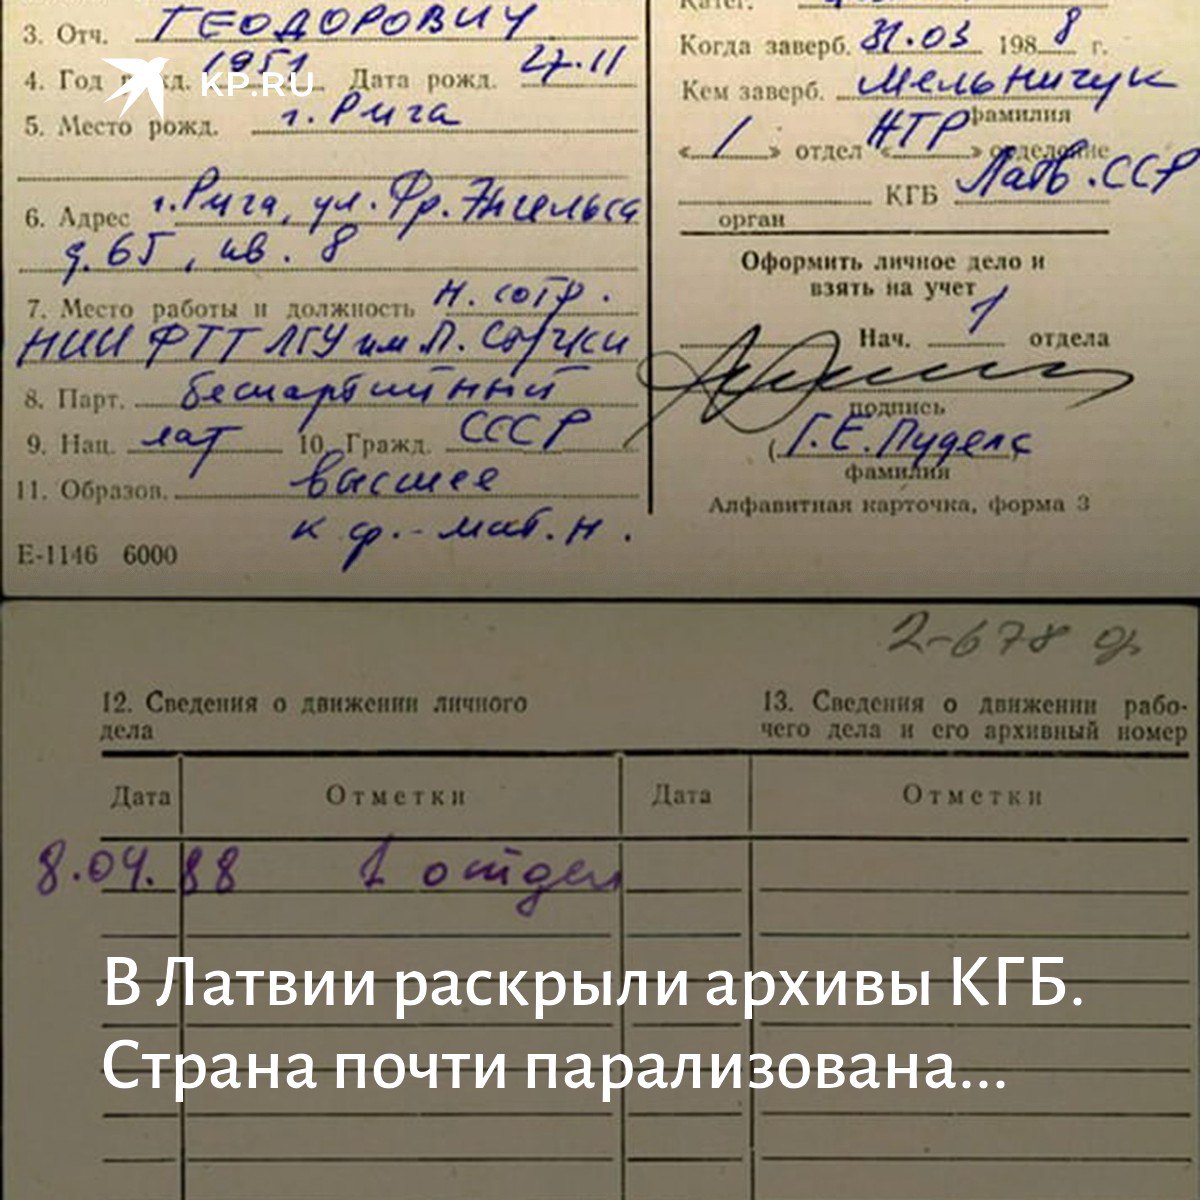 3. Отч. ТЕОДОРОВИЧ
4. Год рожд. 1951 Дата рожд. 27.11
KP.RU
5. Место рожд. г. Рига
6. Адрес г. Рига, ул. Фр. Энгельса
д. 65, кв. 8
7. Место работы и должность н. сотр.
НИИ ФТТ ЛГУ им П. Стучки
8. Парт. беспартийный
9. Нац. лат 10. Гражд. СССР
11. Образов. высшее
к ф.-мат. н.
Е-1146 6000
Катег.
Когда заверб. 31.03 1988 г.
Кем заверб. Мельничук
фамилия
« 1 » отдел « НТР » отделение
КГБ Латв. ССР
орган
Оформить личное дело и
взять на учет
Нач. 1 отдела
подпись
(Г. Е. Пуделс)
фамилия
Алфавитная карточка, форма 3
2-678
12. Сведения о движении личного
дела
13. Сведения о движении рабо-
чего дела и его архивный номер
Дата Отметки Дата Отметки
8.04.88 1 отдел
В Латвии раскрыли архивы КГБ.
Страна почти парализована...